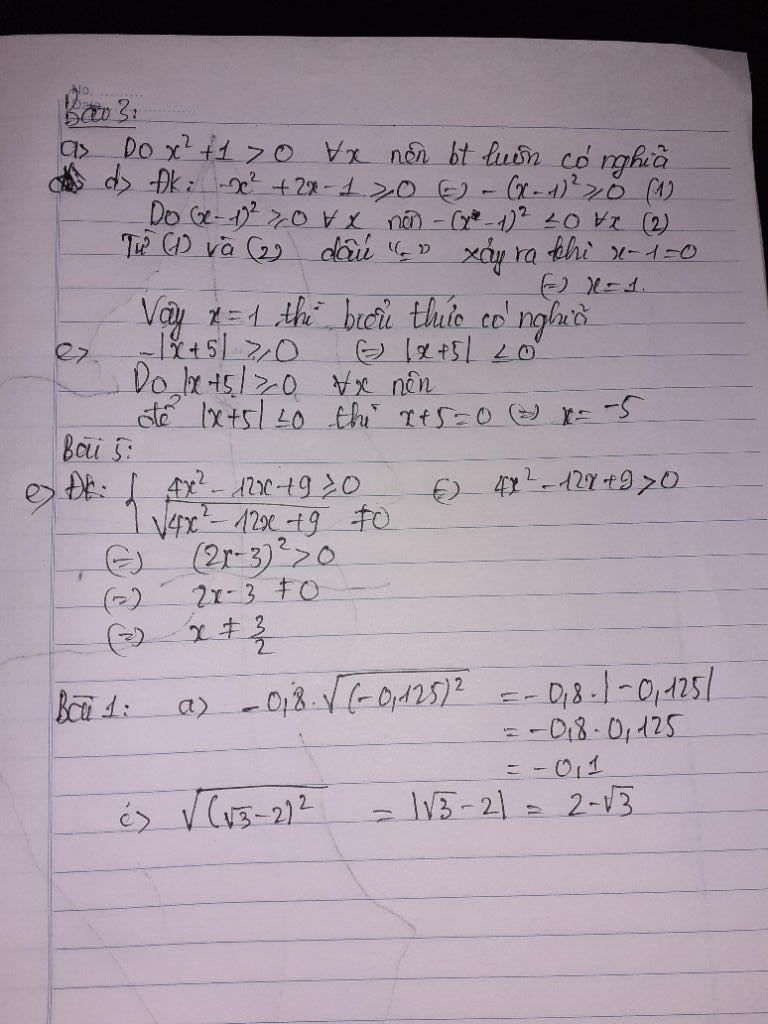 No.
Bài 3:
a> Do x² + 1 > 0 ∀x nên bt luôn có nghĩa
d> ĐK: -x² + 2x - 1 ≥ 0 (=) - (x - 1)² ≥ 0 (1)
Do (x - 1)² ≥ 0 ∀x nên -(x - 1)² ≤ 0 ∀x (2)
Từ (1) và (2) dấu "=" xảy ra khi x - 1 = 0
(=) x = 1.
Vậy x = 1 thì biểu thức có nghĩa
e> -|x + 5| ≥ 0 (=) |x + 5| ≤ 0
Do |x + 5| ≥ 0 ∀x nên
để |x + 5| ≤ 0 thì x + 5 = 0 (=) x = -5
Bài 5:
e> ĐK: { 4x² - 12x + 9 ≥ 0 (=) 4x² - 12x + 9 > 0
√(4x² - 12x + 9) ≠ 0
(=) (2x - 3)² > 0
(=) 2x - 3 ≠ 0
(=) x ≠ 3/2
Bài 1: a> -0,8 . √((-0,125)²) = -0,8 . |-0,125|
= -0,8 . 0,125
= -0,1
c> √((√3 - 2)²) = |√3 - 2| = 2 - √3